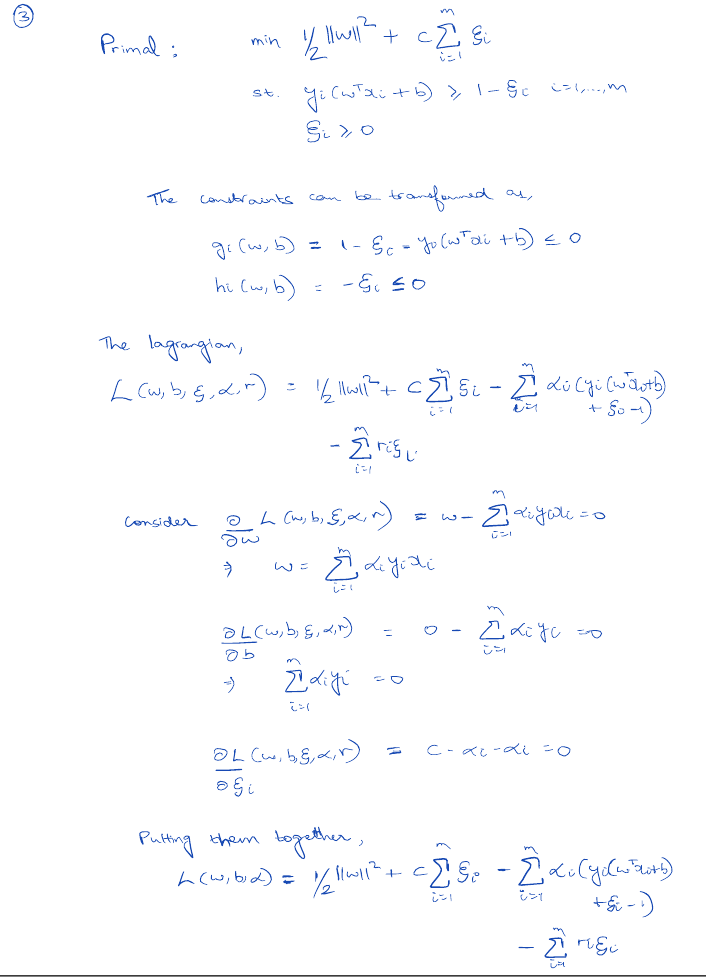 ③
Primal : min 1/2 ||w||² + C Σ_{i=1}^{m} ξi
st. yi(wᵀxi + b) ≥ 1 - ξi i=1,...,m
ξi ≥ 0
The constraints can be transformed as,
gi(w, b) = 1 - ξi - yi(wᵀxi + b) ≤ 0
hi(w, b) = -ξi ≤ 0
The lagrangian,
L(w, b, ξ, α, r) = 1/2 ||w||² + C Σ_{i=1}^{m} ξi - Σ_{i=1}^{m} αi(yi(wᵀxi+b)
+ ξi -1)
- Σ_{i=1}^{m} riξi
Consider ∂/∂w L(w, b, ξ, α, r) = w - Σ_{i=1}^{m} αiyixi = 0
⇒ w = Σ_{i=1}^{m} αiyixi
∂L(w, b, ξ, α, r)/∂b = 0 - Σ_{i=1}^{m} αiyi = 0
⇒ Σ_{i=1}^{m} αiyi = 0
∂L(w, b, ξ, α, r)/∂ξi = C - αi - αi = 0
Putting them together,
L(w, b, α) = 1/2 ||w||² + C Σ_{i=1}^{m} ξi - Σ_{i=1}^{m} αi(yi(wᵀxi+b)
+ ξi - 1)
- Σ_{i=1}^{m} riξi